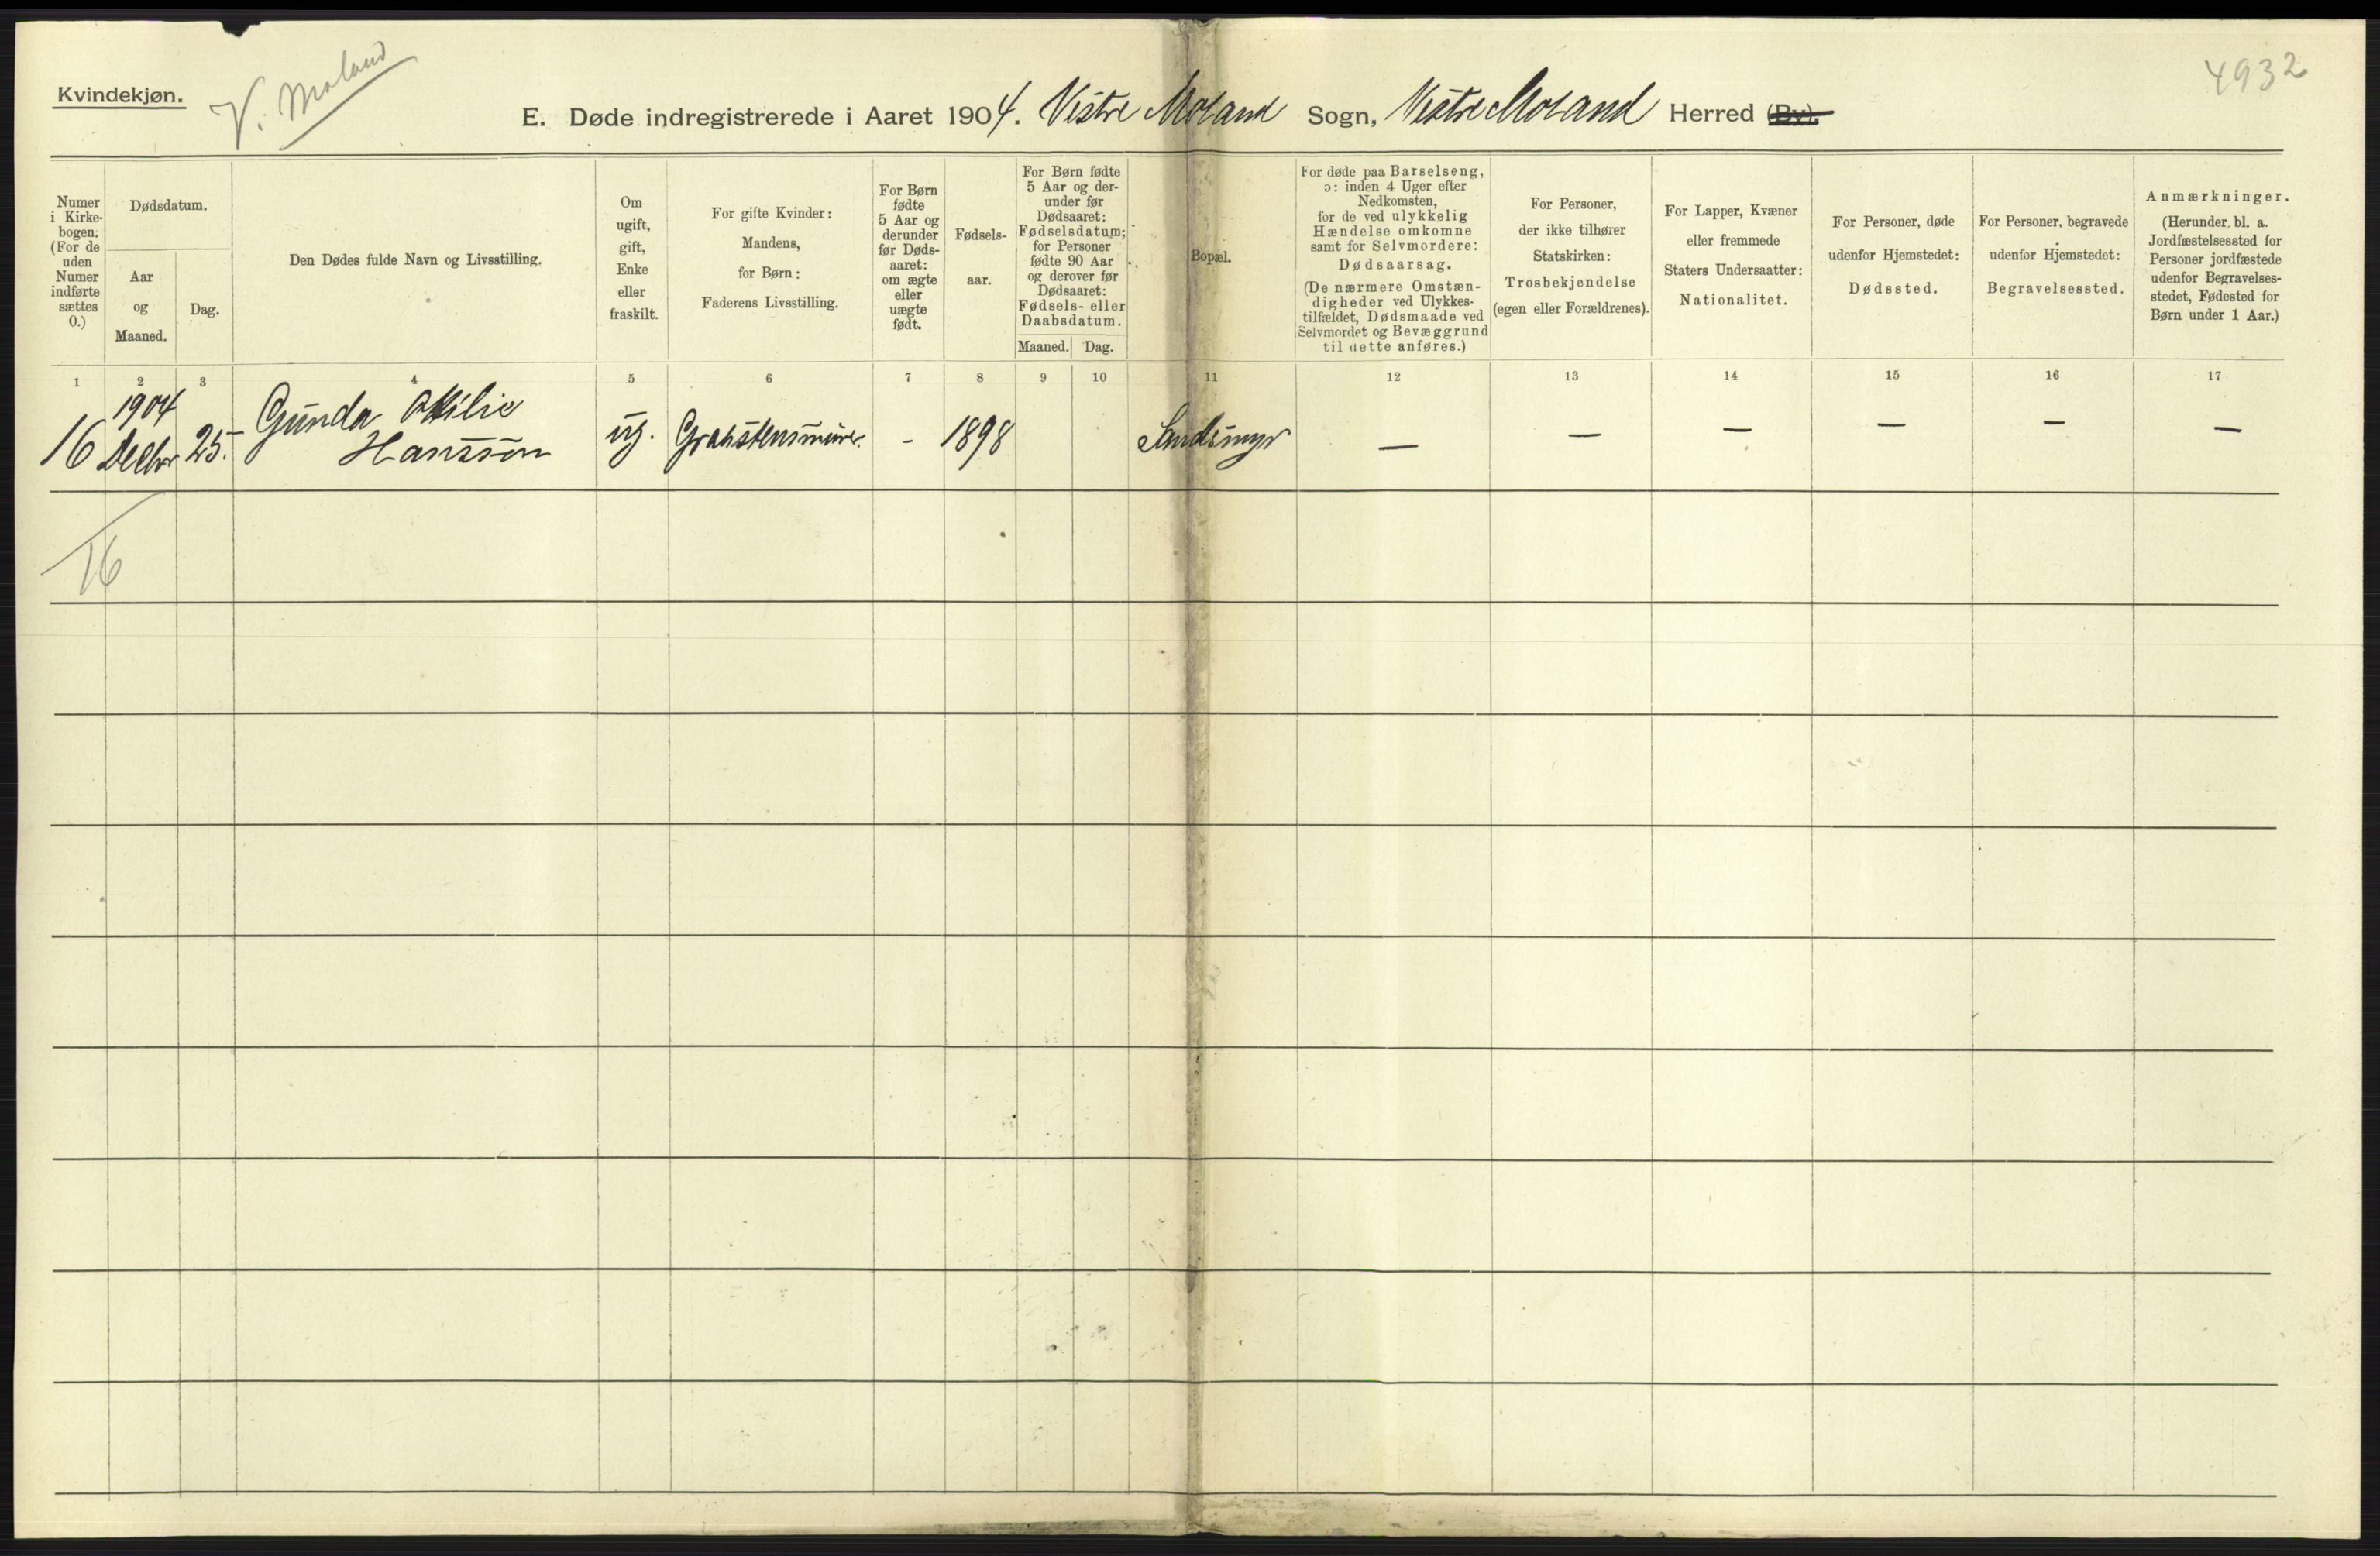 Kvindekjøn.
V. Moland
4932
E. Døde indregistrerede i Aaret 1904. Vestre Moland Sogn, Vestre Moland Herred (By).
Numer
i Kirke-
bogen.
(For de
uden
Numer
indførte
sættes
0.)
Dødsdatum.
Aar
og
Maaned.
Dag.
Den Dødes fulde Navn og Livsstilling.
Om
ugift,
gift,
Enke
eller
fraskilt.
For gifte Kvinder:
Mandens,
for Børn:
Faderens Livsstilling.
For Børn
fødte
5 Aar og
derunder
før Døds-
aaret:
om ægte
eller
uægte
født.
Fødsels-
aar.
For Børn fødte
5 Aar og der-
under før
Dødsaaret:
Fødselsdatum;
for Personer
fødte 90 Aar
og derover før
Dødsaaret:
Fødsels- eller
Daabsdatum.
Maaned.
Dag.
Bopæl.
For døde paa Barselseng,
ɔ: inden 4 Uger efter
Nedkomsten,
for de ved ulykkelig
Hændelse omkomne
samt for Selvmordere:
Dødsaarsag.
(De nærmere Omstæn-
digheder ved Ulykkes-
tilfældet, Dødsmaade ved
Selvmordet og Bevæggrund
til dette anføres.)
For Personer,
der ikke tilhører
Statskirken:
Trosbekjendelse
(egen eller Forældrenes).
For Lapper, Kvæner
eller fremmede
Staters Undersaatter:
Nationalitet.
For Personer, døde
udenfor Hjemstedet:
Dødssted.
For Personer, begravede
udenfor Hjemstedet:
Begravelsessted.
Anmærkninger.
(Herunder bl. a.
Jordfæstelsessted for
Personer jordfæstede
udenfor Begravelses-
stedet, Fødested for
Børn under 1 Aar.)
1 2 3 4 5 6 7 8 9 10 11 12 13 14 15 16 17
1904 Gunda Otilie
16 Decbr 25. Hansson ug. Graastensmurer. - 1898 Sandsmyr — — — — — —
16